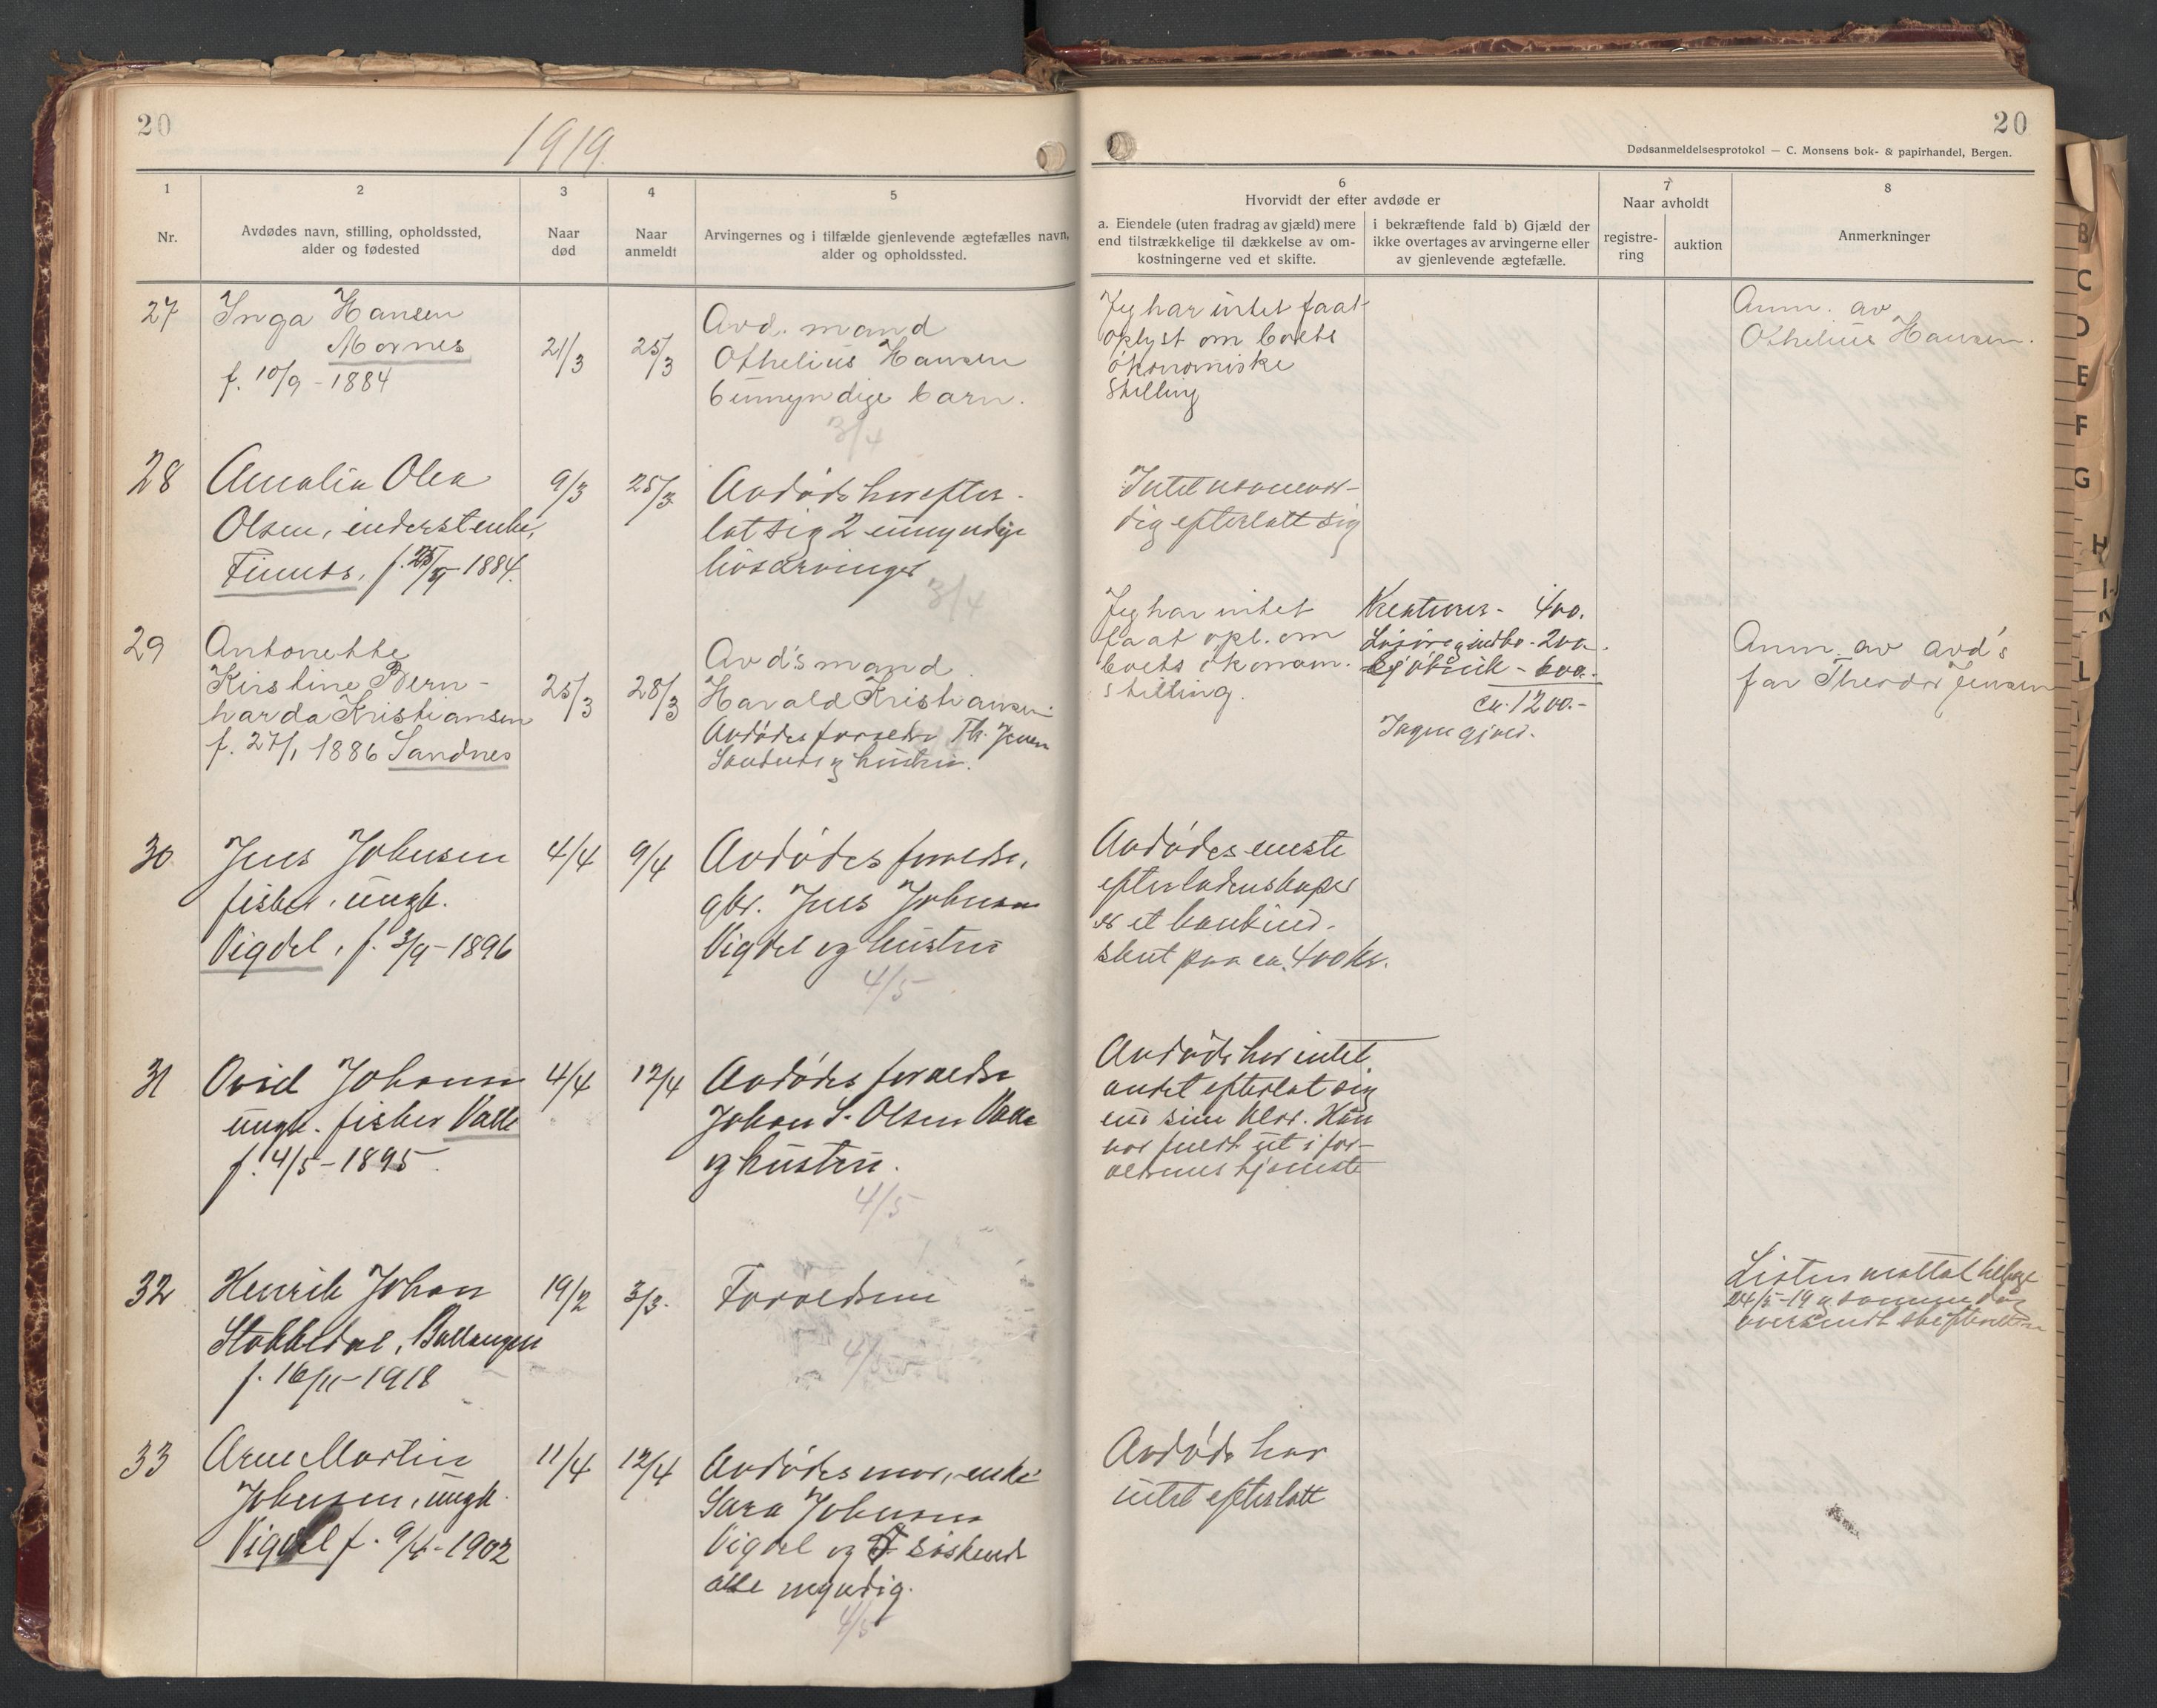 20
1919.
20
Dødsanmeldelsesprotokol — C. Monsens bok- & papirhandel, Bergen.
1
Nr.
2
Avdødes navn, stilling, opholdssted,
alder og fødested
3
Naar
død
4
Naar
anmeldt
5
Arvingernes og i tilfælde gjenlevende ægtefælles navn,
alder og opholdssted.
6
Hvorvidt der efter avdøde er
a. Eiendele (uten fradrag av gjæld) mere
end tilstrækkelige til dækkelse av om-
kostningerne ved et skifte.
i bekræftende fald b) Gjæld der
ikke overtages av arvingerne eller
av gjenlevende ægtefælle.
7
Naar avholdt
registre-
ring
auktion
8
Anmerkninger
27
Inga Hansen
Mornes
f. 10/9 - 1884
21/3
25/3
Avd. mand
Othelius Hansen
6 umyndige barn.
3/4
Jeg har intet faat
oplyst om boets
økonomiske
Stilling
Anm. av
Othelius Hansen.
28
Amalia Olea
Olsen, inderstenke,
f. 1884.
9/3
25/3
Avdøde har efter-
lat sig 2 umyndige
livsarvinger
3/4
Intet nævnevær-
dig efterlatt sig
29
Antonette
Kirstine Bern-
harda Kristiansen
f. 27/1 1886 Sandnes
25/3
28/3
Avd's mand
Harald Kristiansen
Avdødes forældre Th. Jensen
Sandnes og hustru.
Jeg har intet
faat opl. om
boets økonom.
stilling.
Kreaturer - 400.
Løsøre og indbo - 200.
Sjøbruk - 600.-
ca. 1200.-
Ingen gjæld.
Anm. av avd's
far Theodor Jensen
30
Jens Johnsen
fisker, ungk.
Vigdel, f. 3/9 - 1896
4/4
9/4
Avdødes forældre,
gbr. Jens Johnsen
Vigdel og hustru
4/5
Avdødes eneste
efterladenskaper
er et bankind-
skut paa ca. 400 kr.
31
Johan
ungk. fisker Valle
f. 4/5 - 1895
4/4
12/4
Avdødes forældre
Johan S. Olsen Valle
og hustru.
4/5
Avdøde har intet
andet efterlat sig
end sine klær. Han
var fuldt ut i for-
ældrenes tjeneste
32
Henrik Johan
Stobbedal, Ballangen
f. 16/11 - 1918
19/2
3/3.
Forældrene
4/5
Listen mottat tilbage
24/5-19 og samme dag
oversendt skifteretten
33
Arne Martin
Johnsen, ungk.
Vigdel f. 9/4 - 1902
11/4
12/4
Avdødes mor, enke
Sara Johnsen
Vigdel og søskende
alle myndig.
4/5
Avdøde har
intet efterlatt
B
C
D
E
F
G
H
L